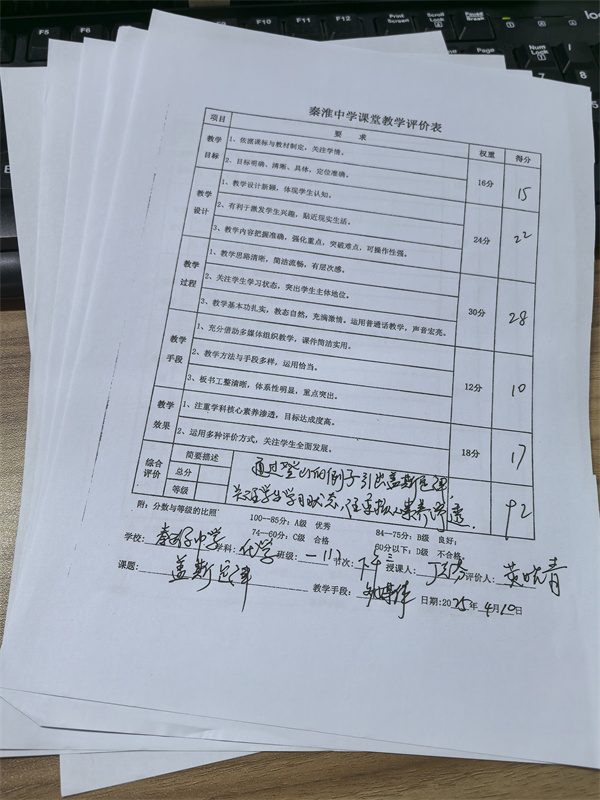 F5 F6 F10 F11 F12 Print Screen Scroll Lock Pause Break
Num Lock Page
秦淮中学课堂教学评价表
项目 要 求 权重 得分
教学目标 1、依据课标与教材制定，关注学情。 16分 15
2、目标明确、清晰、具体，定位准确。
教学设计 1、教学设计新颖，体现学生认知。 24分 22
2、有利于激发学生兴趣，贴近现实生活。
3、教学内容把握准确，强化重点，突破难点，可操作性强。
教学过程 1、教学思路清晰，简洁流畅，有层次感。 30分 28
2、关注学生学习状态，突出学生主体地位。
3、教学基本功扎实，教态自然，充满激情。运用普通话教学，声音宏亮。
教学手段 1、充分借助多媒体组织教学，课件简洁实用。 12分 10
2、教学方法与手段多样，运用恰当。
3、板书工整清晰，体系性明显，重点突出。
教学效果 1、注重学科核心素养渗透，目标达成度高。 18分 17
2、运用多种评价方式，关注学生全面发展。
综合评价 简要描述 通过登山的例子引出盖斯定律， 92
总分 关注学生学习状态，注重核心素养渗透.
等级
附：分数与等级的比照 100—85分：A级 优秀 84—75分：B级 良好；
74—60分：C级 合格 60分以下：D级 不合格。
学校：秦淮中学 学科：化学 班级： 节次：下午三 授课人： 评价人：黄晓青
课题：盖斯定律 教学手段：多媒体 日期：2025年4月10日